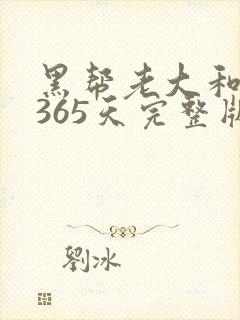 黑帮老大和
365天完整版
劉冰